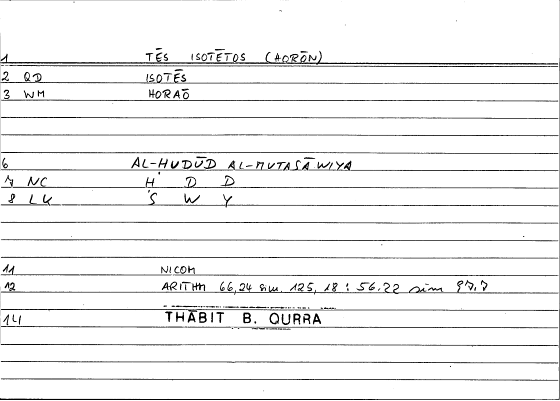 1 TĒS ISOTĒTOS (HORŌN)
2 QD ISOTĒS
3 WM HORAŌ
6 AL-ḤUDŪD AL-MUTASĀWIYA
7 NC Ḥ D D
8 LK S W Y
11 NICOM
12 ARITHM 66,24 sim. 125,18 : 56.22 sim 97.7
14 THĀBIT B. QURRA